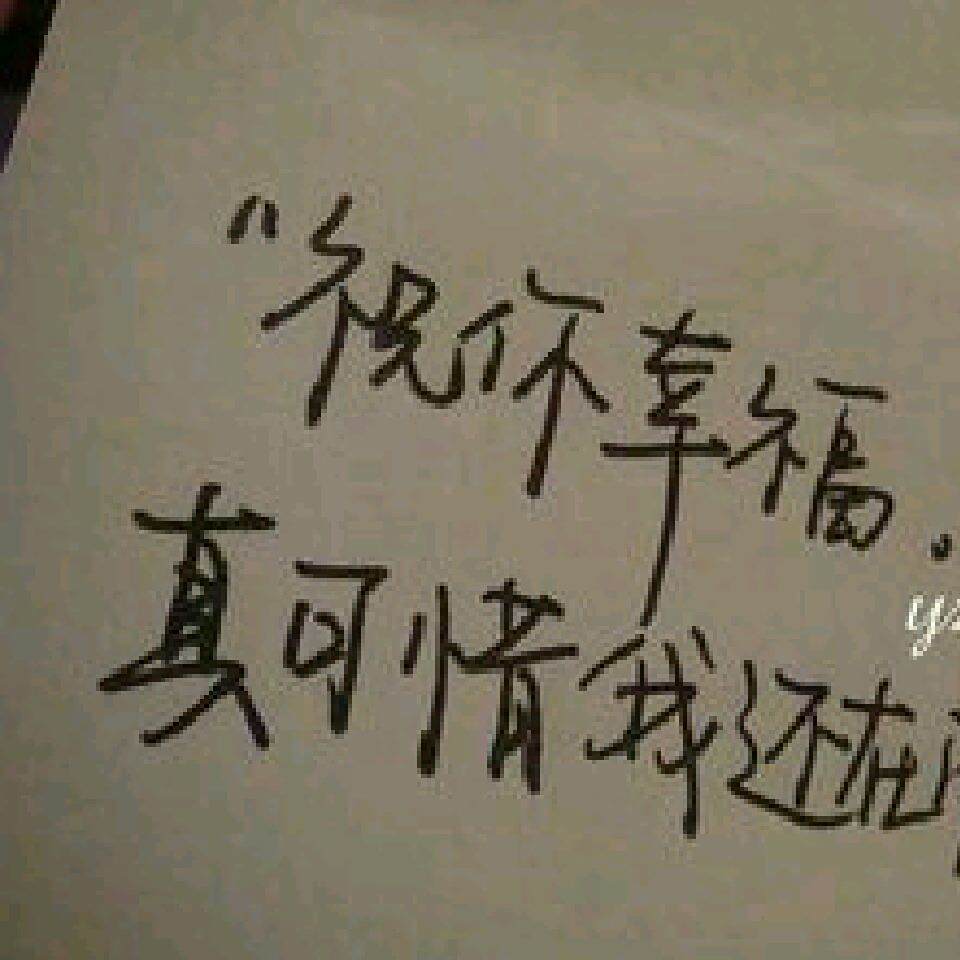 “祝你幸福.
真可惜我还在